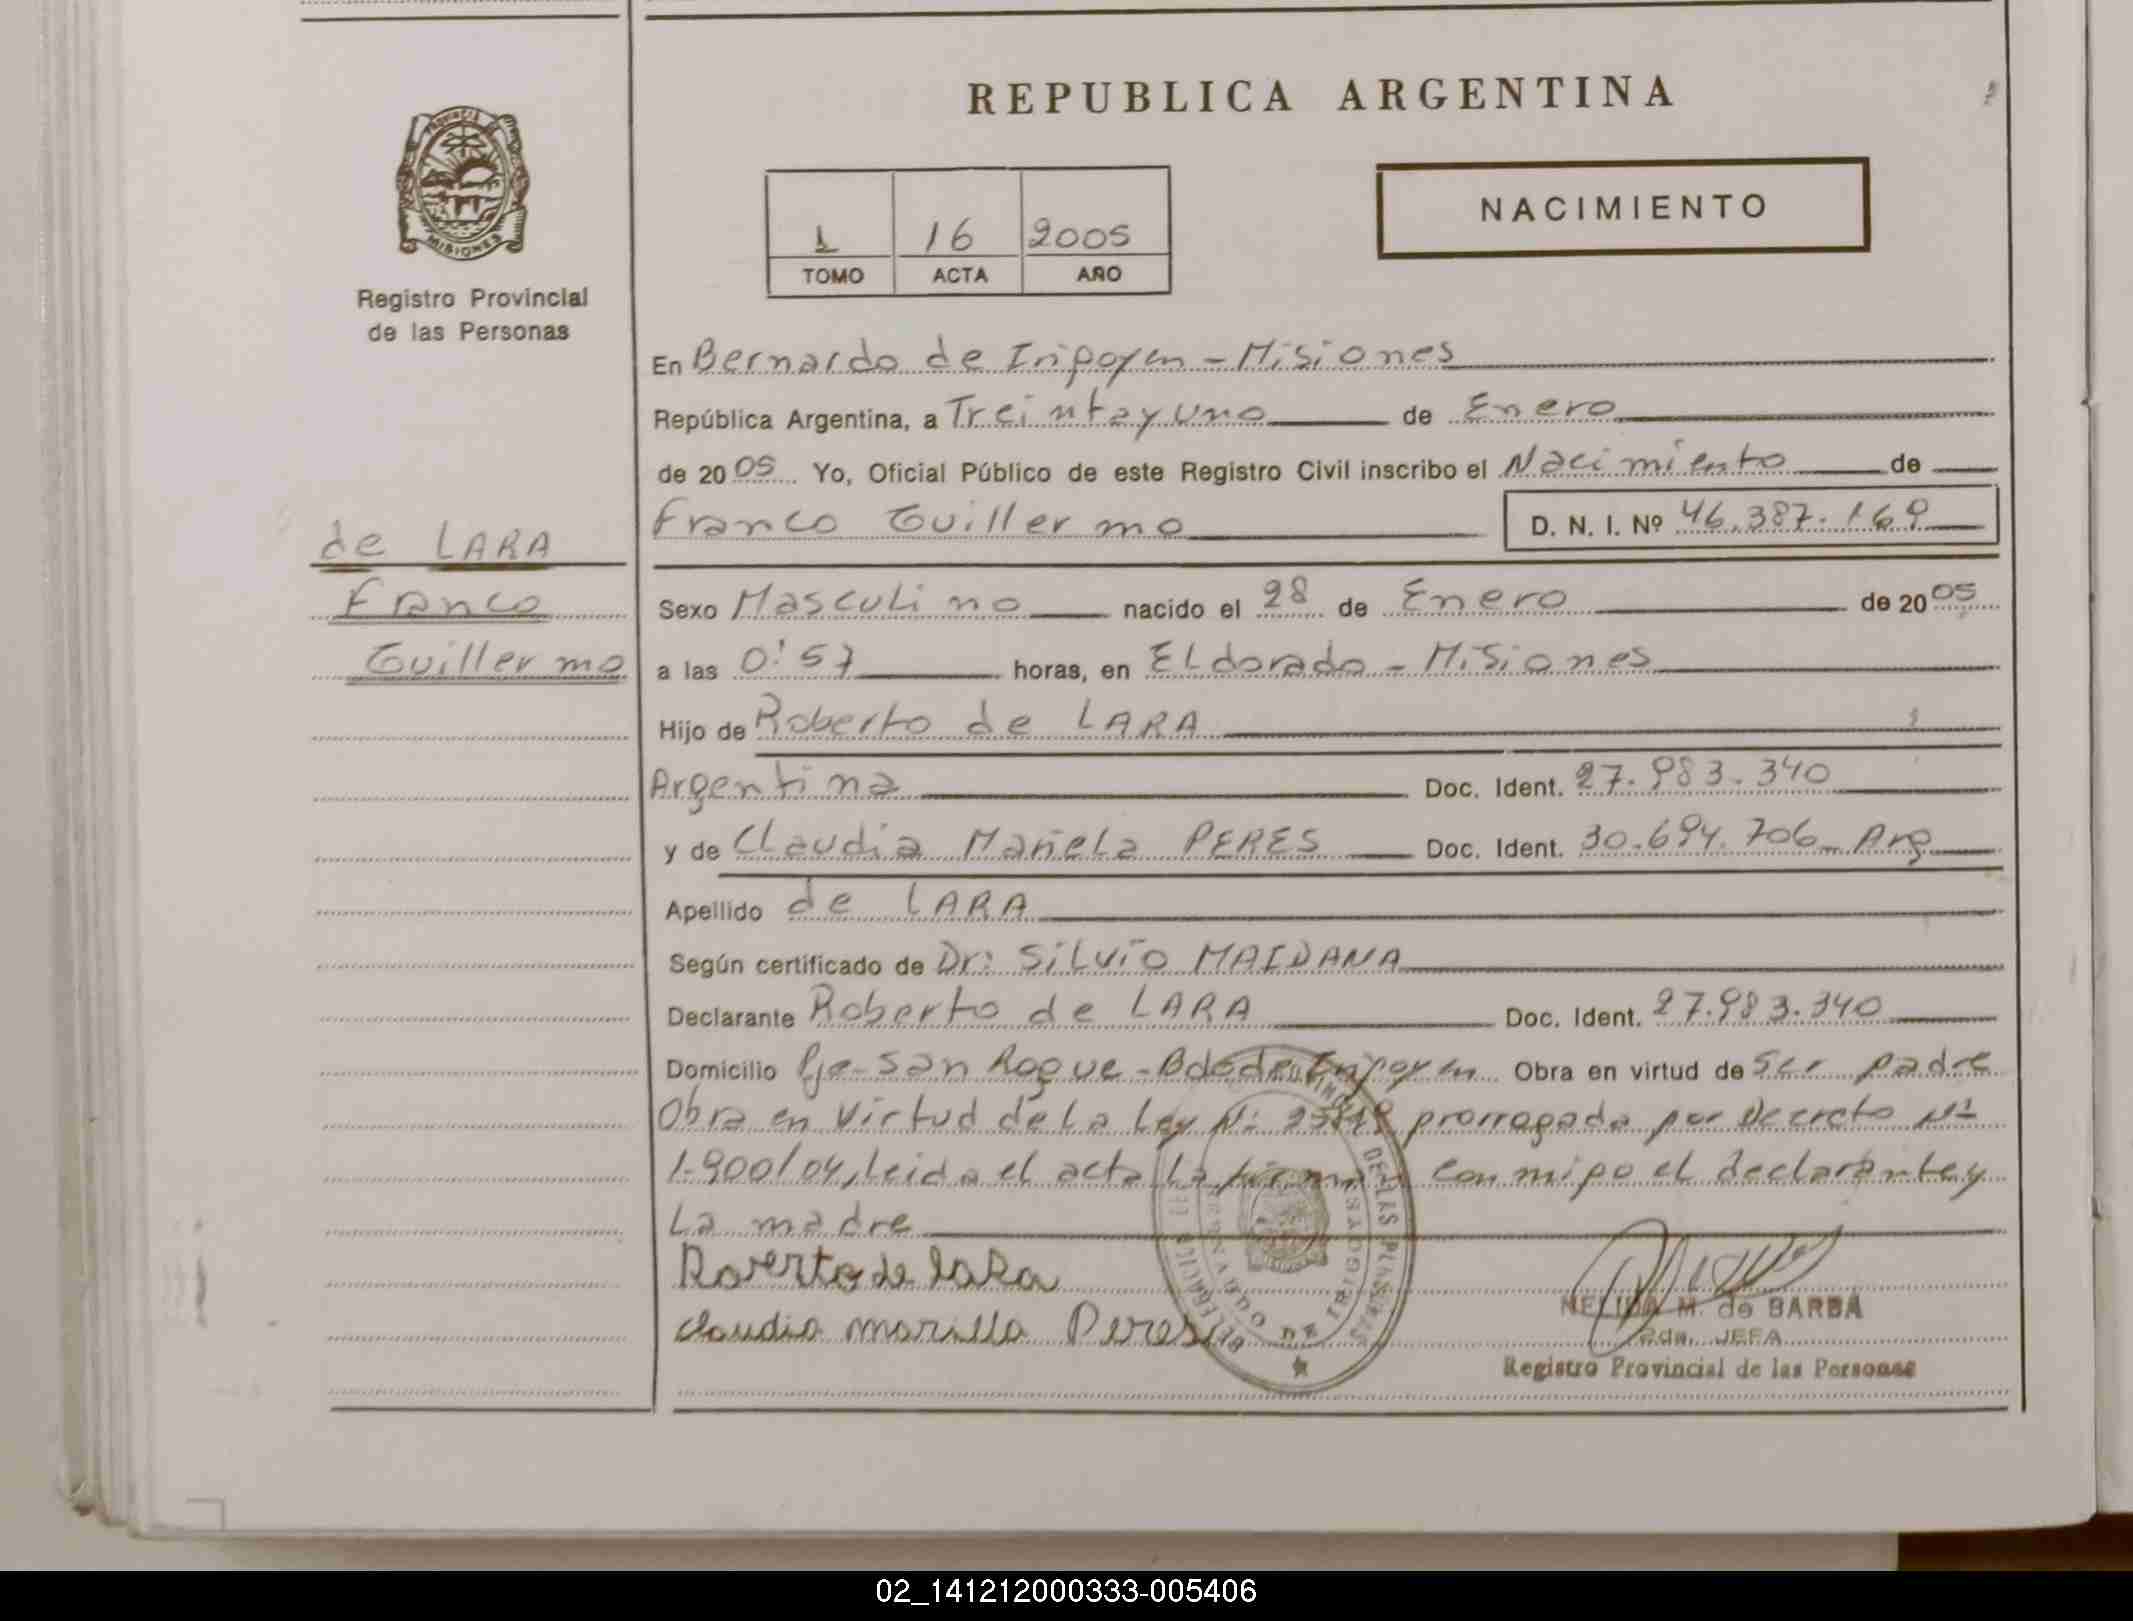 REPUBLICA ARGENTINA
NACIMIENTO
1 16 2005
TOMO ACTA AÑO
PROVINCIA DE
MISIONES
Registro Provincial
de las Personas
de LARA
Franco
Guillermo
En Bernardo de Irigoyen - Misiones
República Argentina, a Treinta y uno de Enero
de 2005 Yo, Oficial Público de este Registro Civil inscribo el Nacimiento de
Franco Guillermo D. N. I. Nº 46.387.169
Sexo Masculino nacido el 28 de Enero de 2005
a las 0:57 horas, en Eldorado - Misiones
Hijo de Roberto de LARA
Argentina Doc. Ident. 27.983.340
y de Claudia Mariela PERES Doc. Ident. 30.694.706 - Arg
Apellido de LARA
Según certificado de Dr: Silvio MAIDANA
Declarante Roberto de LARA Doc. Ident. 27.983.340
Domicilio Pje - San Roque - Bdo de Irigoyen Obra en virtud de Ser padre
Obra en Virtud de La Ley Nº 25819 prorrogada por Decreto Nº
1.900/04, leida el acta La firman conmigo el declarante y
La madre
Roverto de laRa
claudia mariella Peres
NELIDA M. de BARBA
2da. JEFA
Registro Provincial de las Personas
02_141212000333-005406